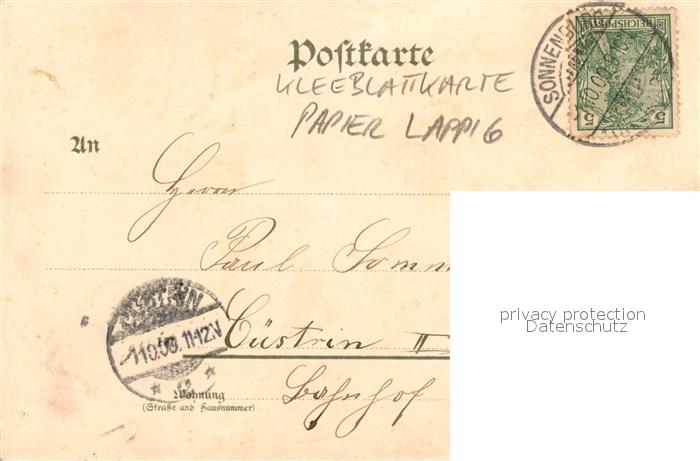 Postkarte
KLEEBLATTKARTE
PAPIER LAPPIG
An
Herrn
Paul Somm
Cüstrin II
Bahnhof
Wohnung
(Straße und Hausnummer)
SONNENBURG
REICHSPOST
5 5
11-12V
privacy protection
Datenschutz